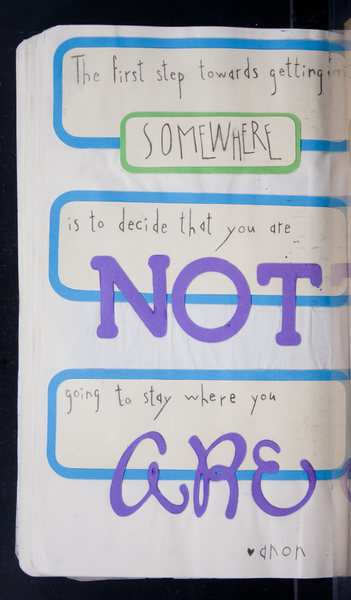 The first step towards getting
SOMEWHERE
is to decide that you are
NOT
going to stay where you
ARE
♥anon